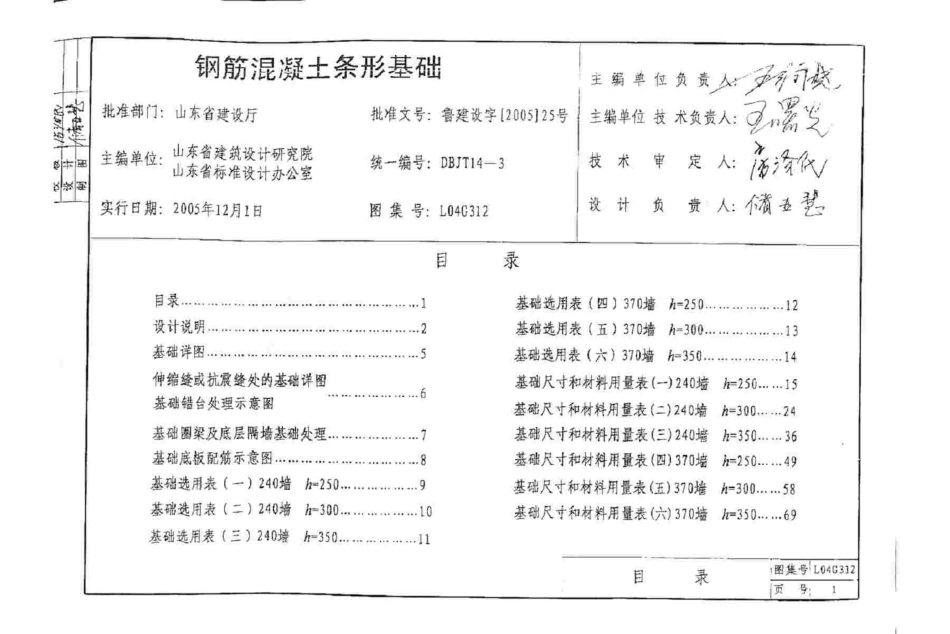 钢筋混凝土条形基础
批准部门: 山东省建设厅
批准文号: 鲁建设字[2005]25号
主编单位: 山东省建筑设计研究院
山东省标准设计办公室
统一编号: DBJT14-3
实行日期: 2005年12月1日
图 集 号: L04G312
主 编 单 位 负 责 人:
主编单位 技 术负责人:
技 术 审 定 人:
设 计 负 责 人: 储五慧
目 录
目录……………………………………1
设计说明…………………………………2
基础详图…………………………………5
伸缩缝或抗震缝处的基础详图
基础错台处理示意图
………………6
基础圈梁及底层隔墙基础处理……………7
基础底板配筋示意图………………………8
基础选用表(一)240墙 h=250……………9
基础选用表(二)240墙 h=300……………10
基础选用表(三)240墙 h=350……………11
基础选用表(四)370墙 h=250……………12
基础选用表(五)370墙 h=300……………13
基础选用表(六)370墙 h=350……………14
基础尺寸和材料用量表(一)240墙 h=250……15
基础尺寸和材料用量表(二)240墙 h=300……24
基础尺寸和材料用量表(三)240墙 h=350……36
基础尺寸和材料用量表(四)370墙 h=250……49
基础尺寸和材料用量表(五)370墙 h=300……58
基础尺寸和材料用量表(六)370墙 h=350……69
目 录
图集号 L04G312
页 号: 1
校 核
设 计
制 图